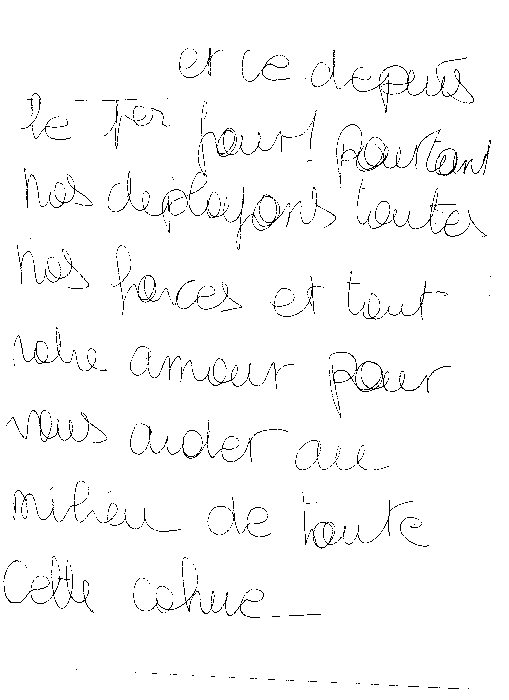 et ce depuis
le 1er jour! pourtant
nos deployons toutes
nos forces et tout
notre amour pour
vous aider au
milieu de toute
cette cohue...